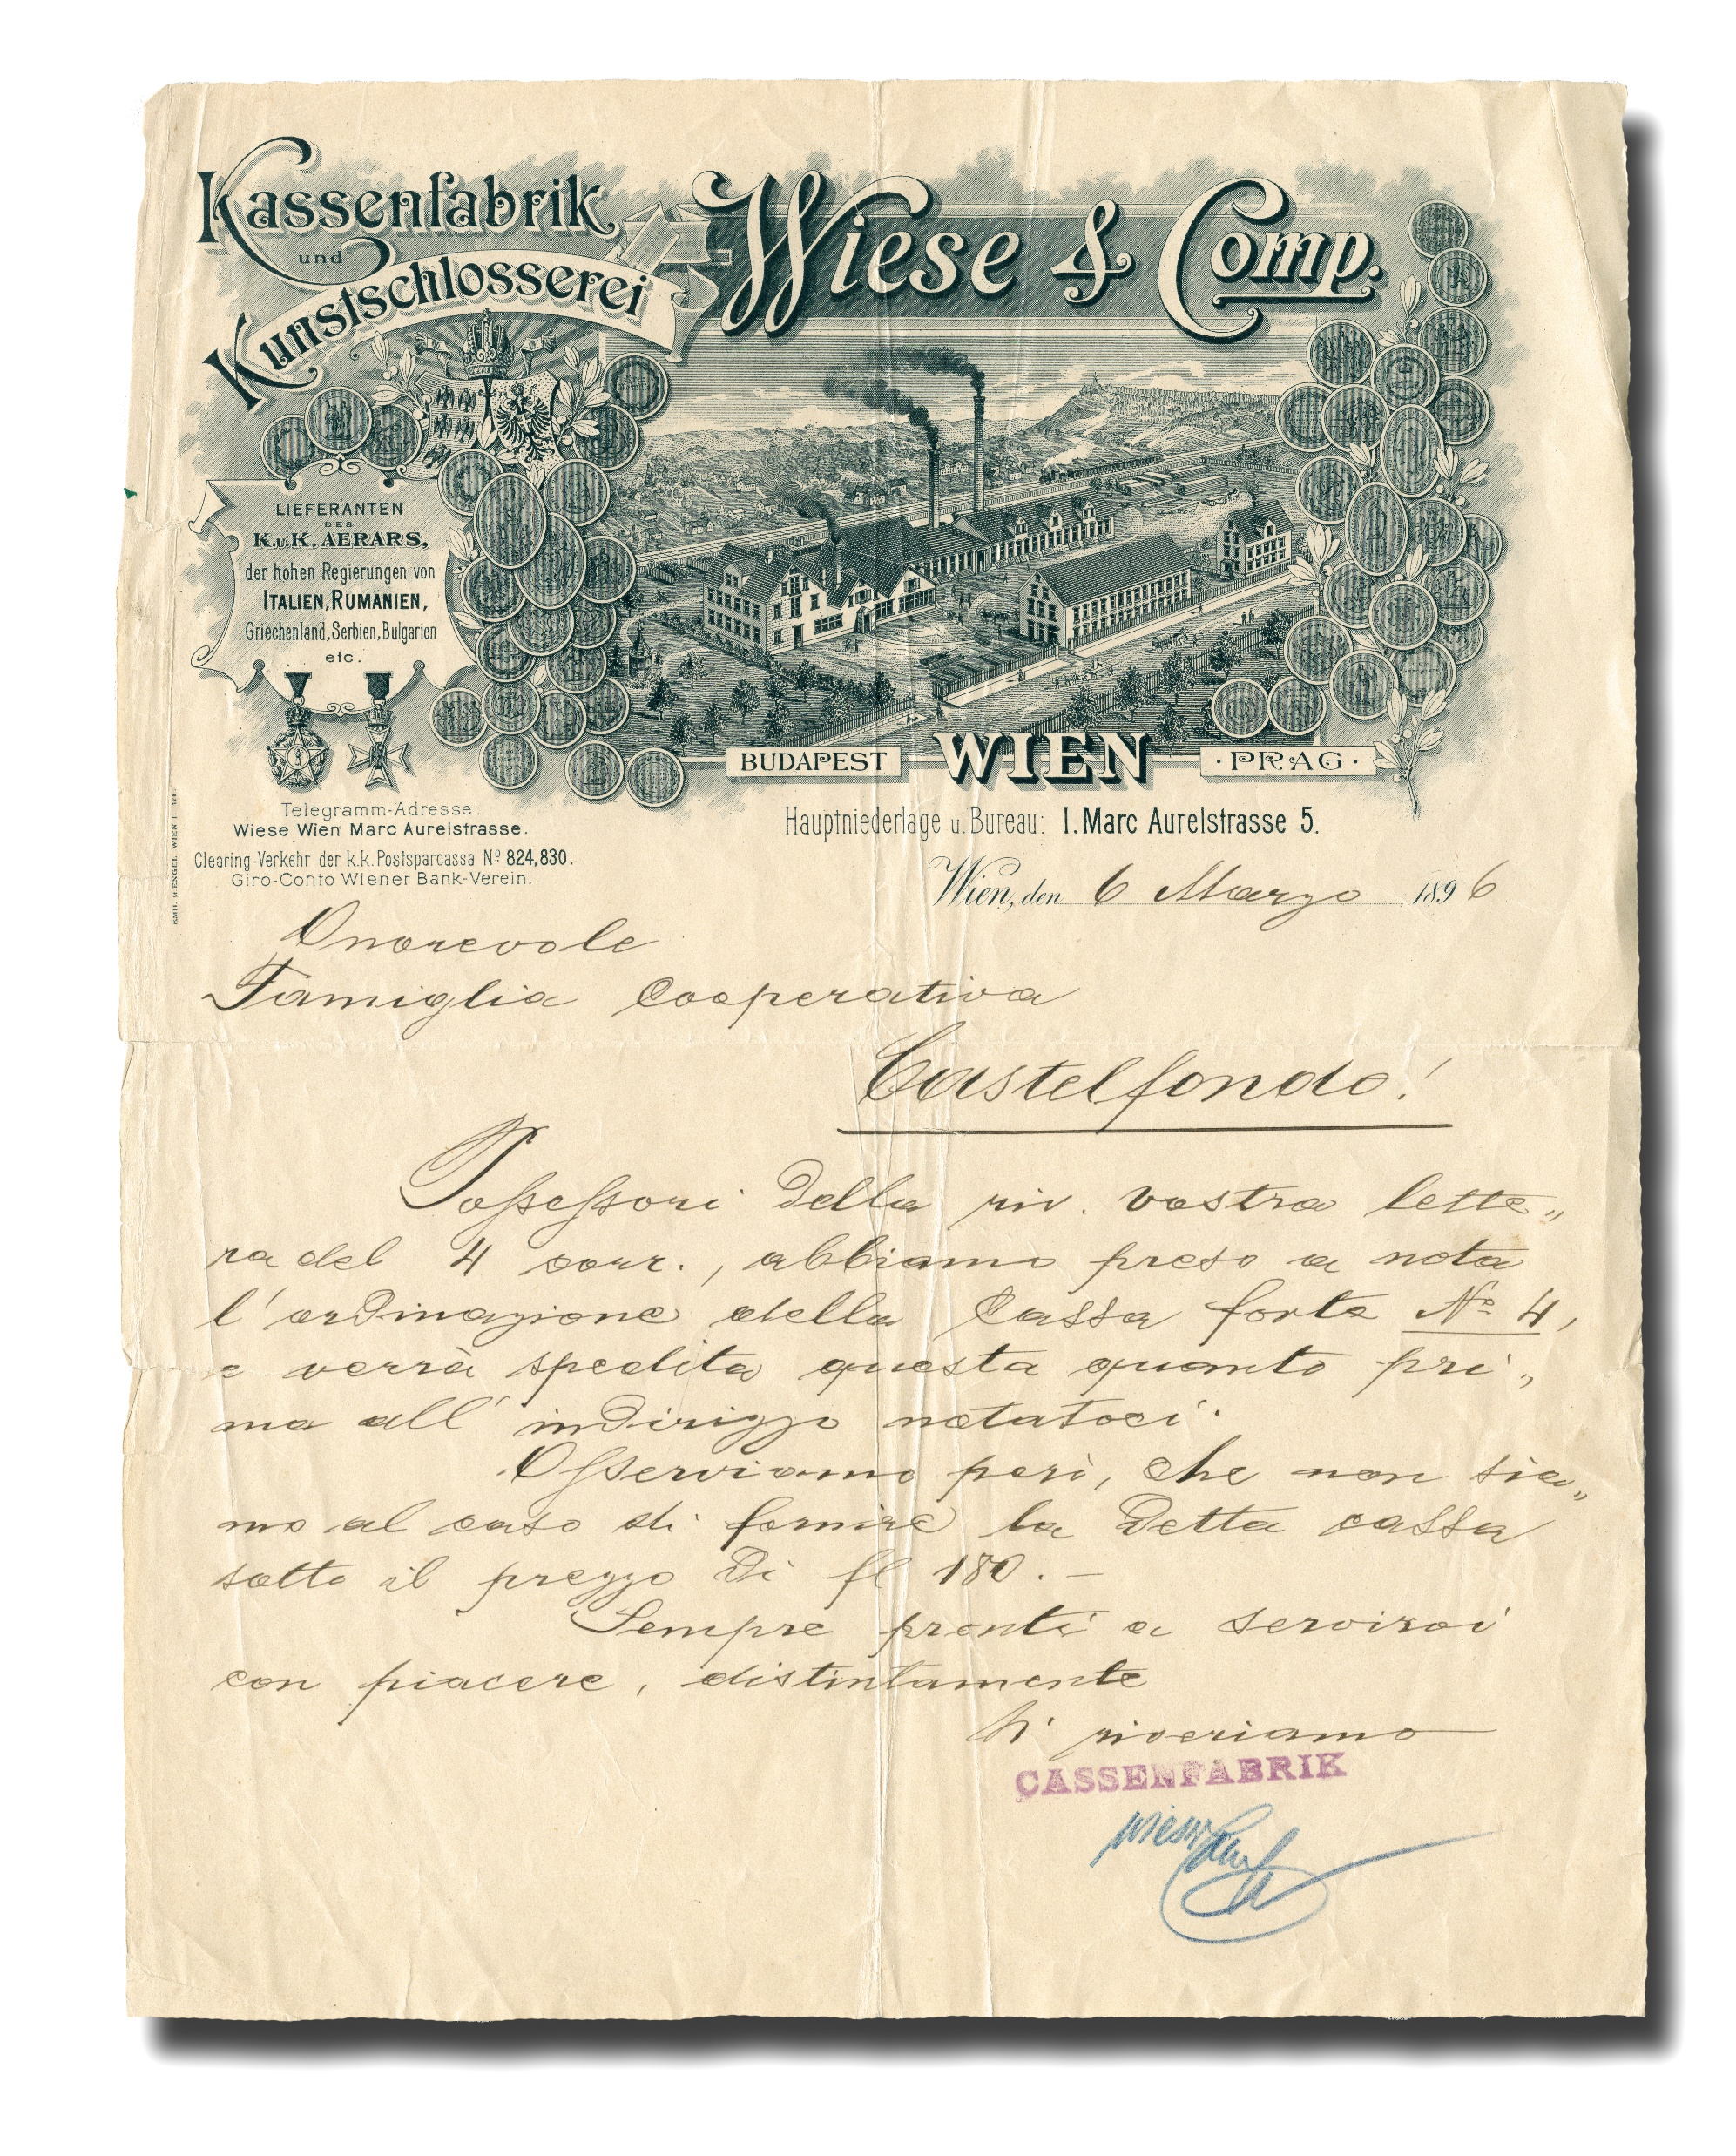 Kassenfabrik
und
Kunstschlosserei
Wiese & Comp.
LIEFERANTEN
DES
K.u.K. AERARS,
der hohen Regierungen von
ITALIEN, RUMÄNIEN,
Griechenland, Serbien, Bulgarien
etc.
BUDAPEST WIEN · PRAG ·
Telegramm-Adresse:
Wiese Wien Marc Aurelstrasse.
Clearing-Verkehr der k.k. Postsparcassa Nº 824,830.
Giro-Conto Wiener Bank-Verein.
EMIL M. ENGEL WIEN I
Hauptniederlage u. Bureau: I. Marc Aurelstrasse 5.
Wien, den 6 Marzo 1896
Onorevole
Famiglia Cooperativa
Castelfondo!
Possessori della riv. vostra lette„
ra del 4 corr., abbiamo preso a nota
l'ordinazione della Cassa forte Nº 4,
e verrà spedita questa quanto pri„
ma all' indirizzo notatoci.
Osserviamo però, che non sia„
mo al caso di fornire la detta cassa
sotto il prezzo di fl 180.–
Sempre pronti a servirvi
con piacere, distintamente
Vi riveriamo
CASSENFABRIK